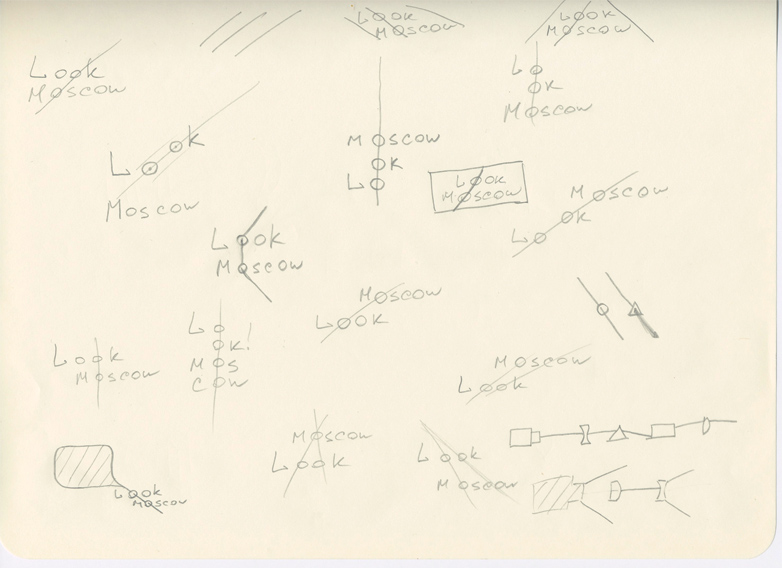 Look
Moscow
Look
Moscow
Look
Moscow
Lo
ok
Moscow
Look
Moscow
Moscow
ok
Lo
Look
Moscow
Moscow
ok
Lo
Look
Moscow
Moscow
Look
Lo
ok!
Mos
cow
Look
Moscow
Moscow
Look
Moscow
Look
Look
Moscow
Look
Moscow